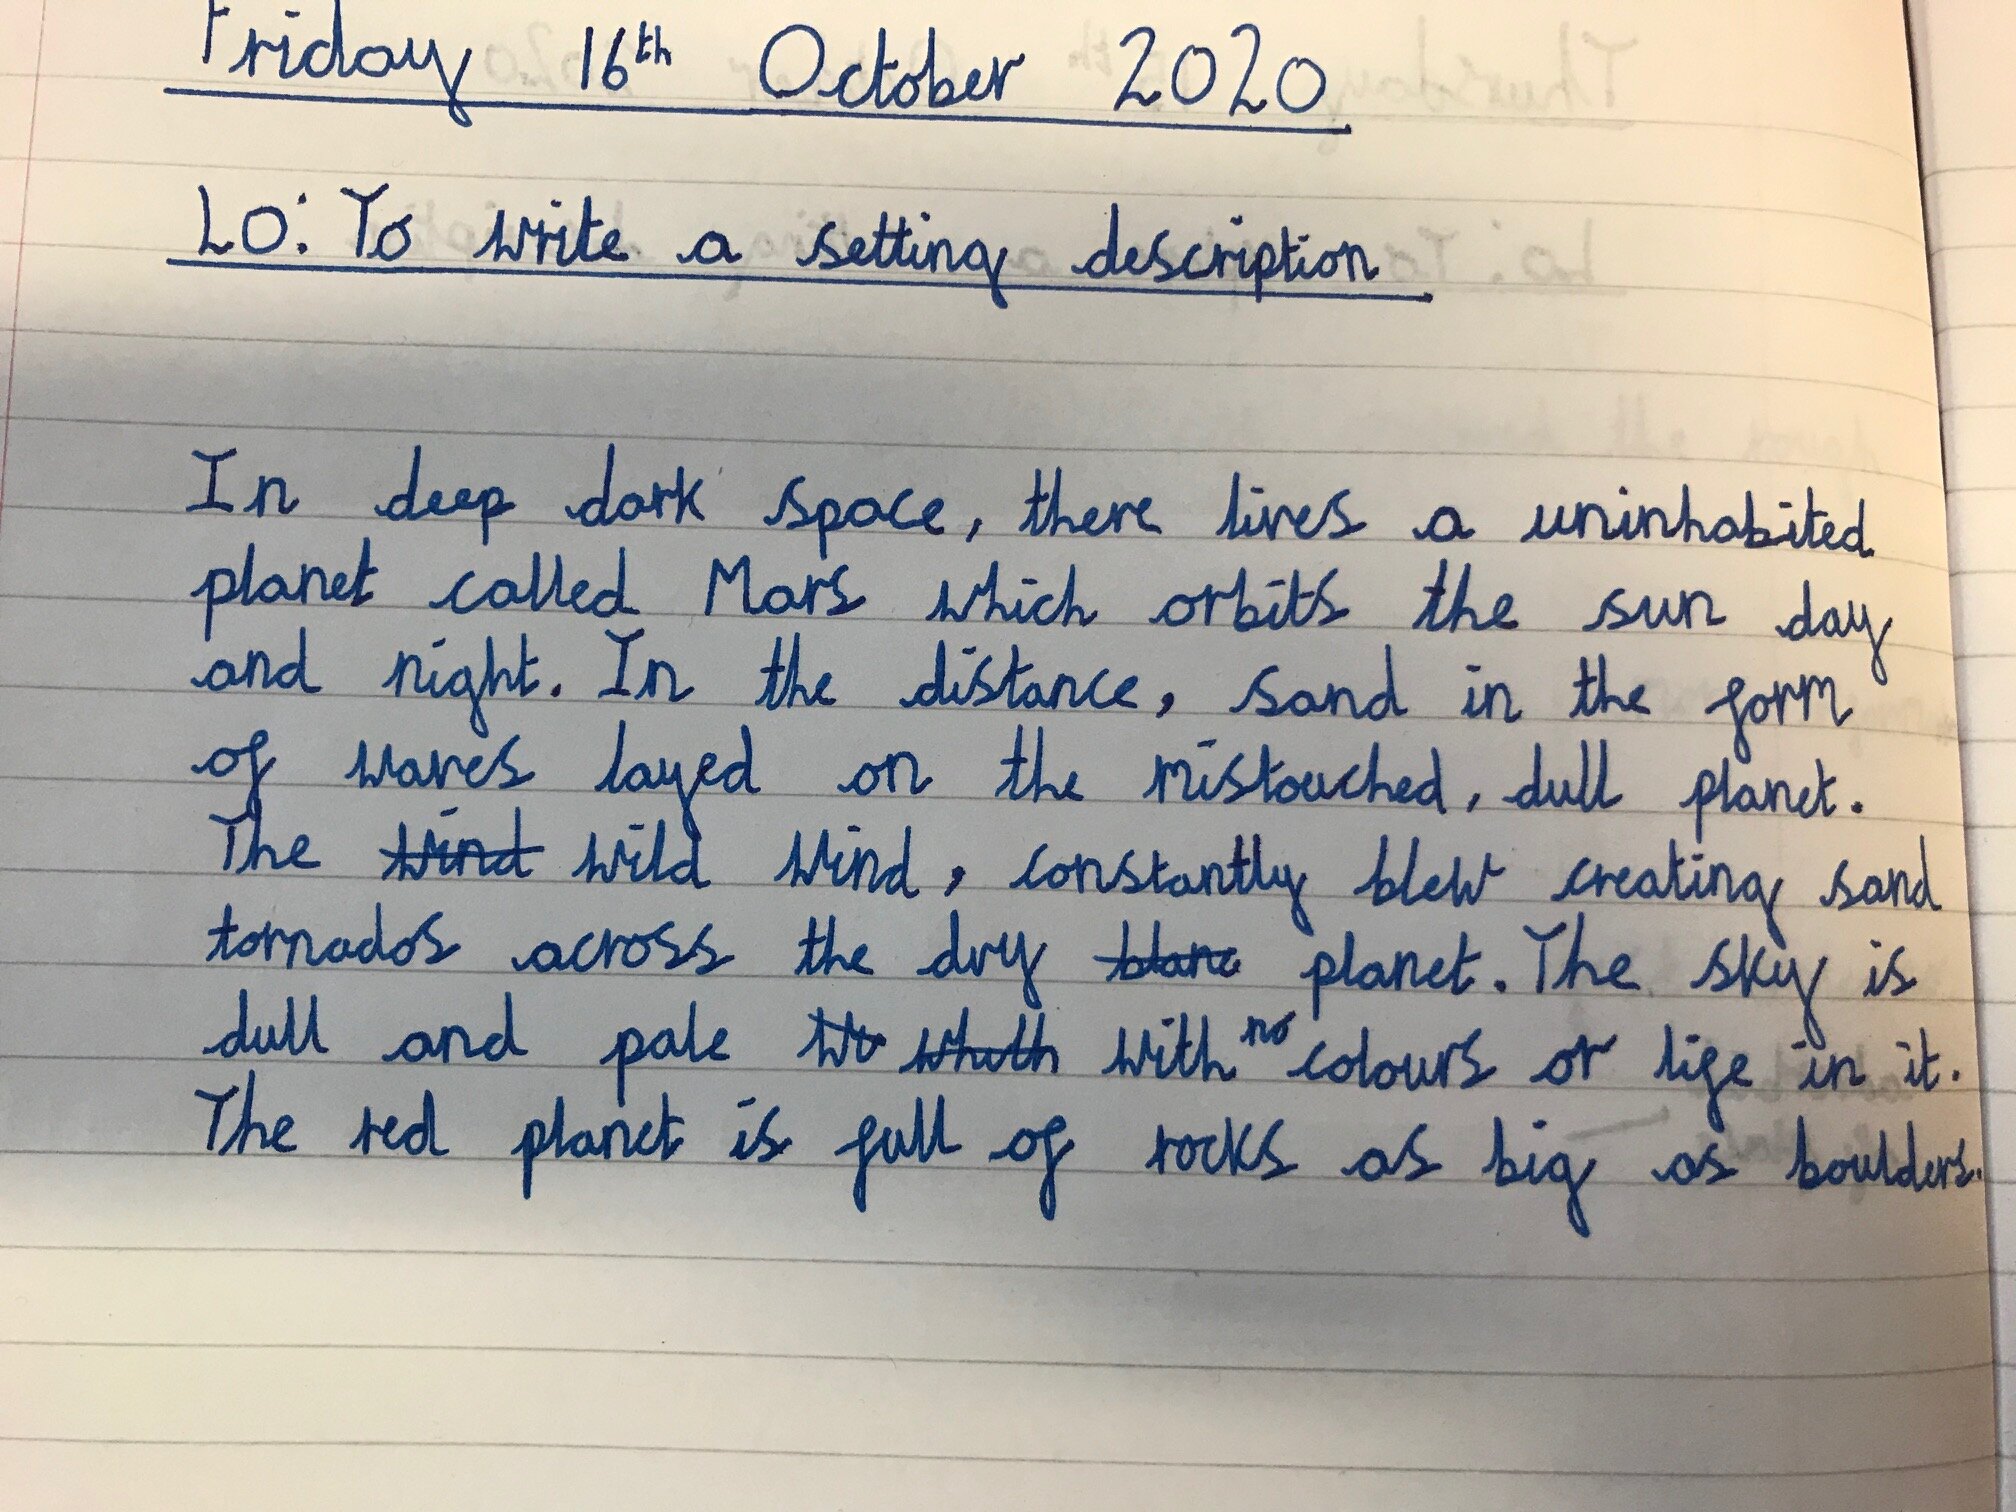 Friday 16th October 2020
LO: To write a setting description
In deep dark space, there lives a uninhabited
planet called Mars which orbits the sun day
and night. In the distance, sand in the form
of waves layed on the mistouched, dull planet.
The wind wild wind, constantly blew creating sand
tornados across the dry blanc planet. The sky is
dull and pale with no colours or life in it.
The red planet is full of rocks as big as boulders.